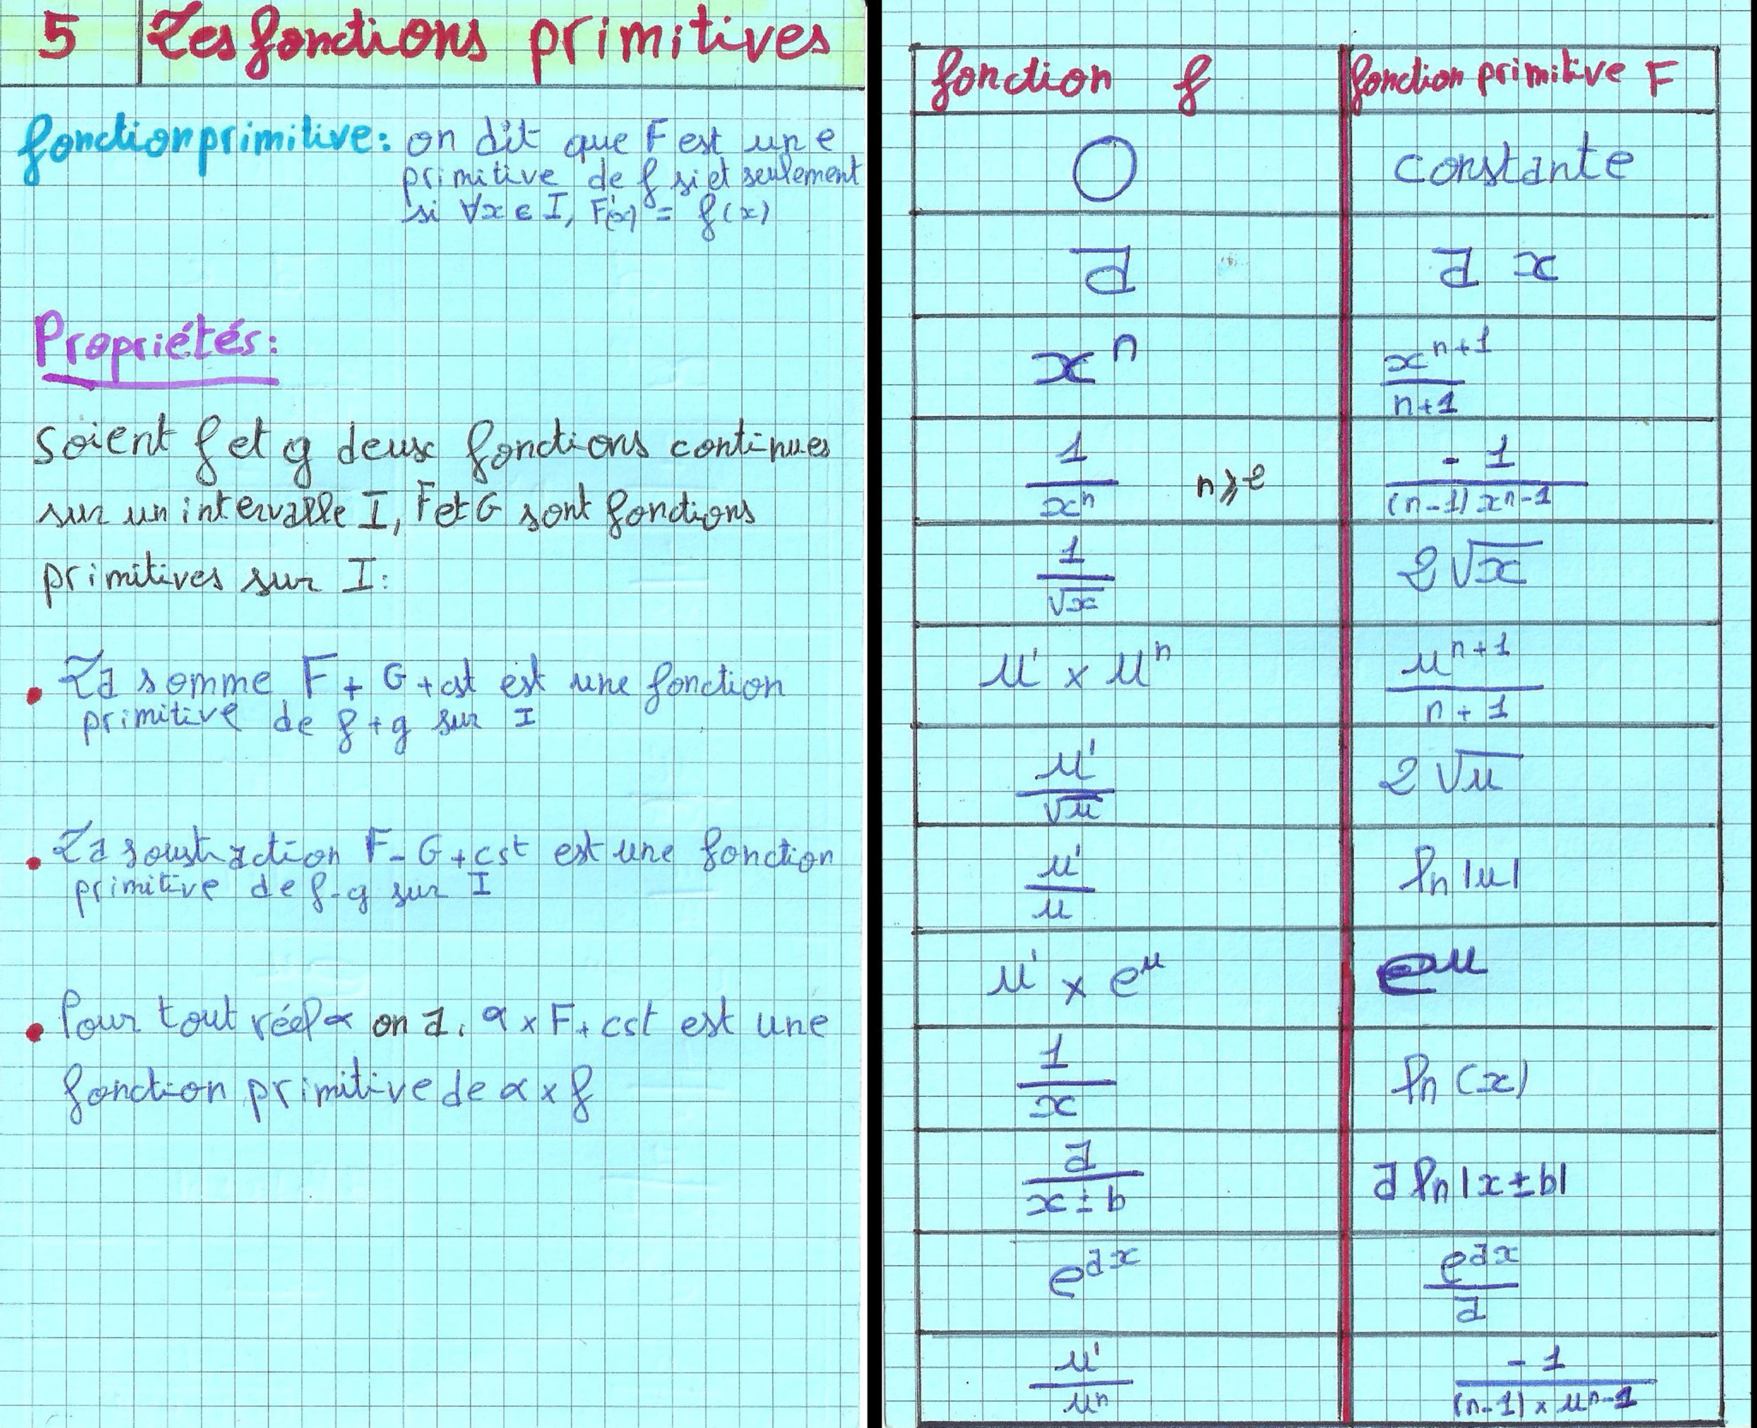 5 Les fonctions primitives
fonction primitive: on dit que F est une
primitive de f si et seulement
si ∀x ∈ I, F'(x) = f(x)
Propriétés:
Soient f et g deux fonctions continues
sur un intervalle I, F et G sont fonctions
primitives sur I:
• La somme F + G + cst est une fonction
primitive de f + g sur I
• La soustraction F - G + cst est une fonction
primitive de f - g sur I
• Pour tout réel α on a: α x F + cst est une
fonction primitive de α x f
fonction f | fonction primitive F
0 | constante
a | a x
x^n | x^(n+1) / (n+1)
1 / x^n n ≥ 2 | -1 / ((n-1) x^(n-1))
1 / √x | 2√x
u' x u^n | u^(n+1) / (n+1)
u' / √u | 2√u
u' / u | ln |u|
u' x e^u | e^u
1 / x | ln (x)
a / (x ± b) | a ln |x ± b|
e^(ax) | e^(ax) / a
u' / u^n | -1 / ((n-1) x u^(n-1))